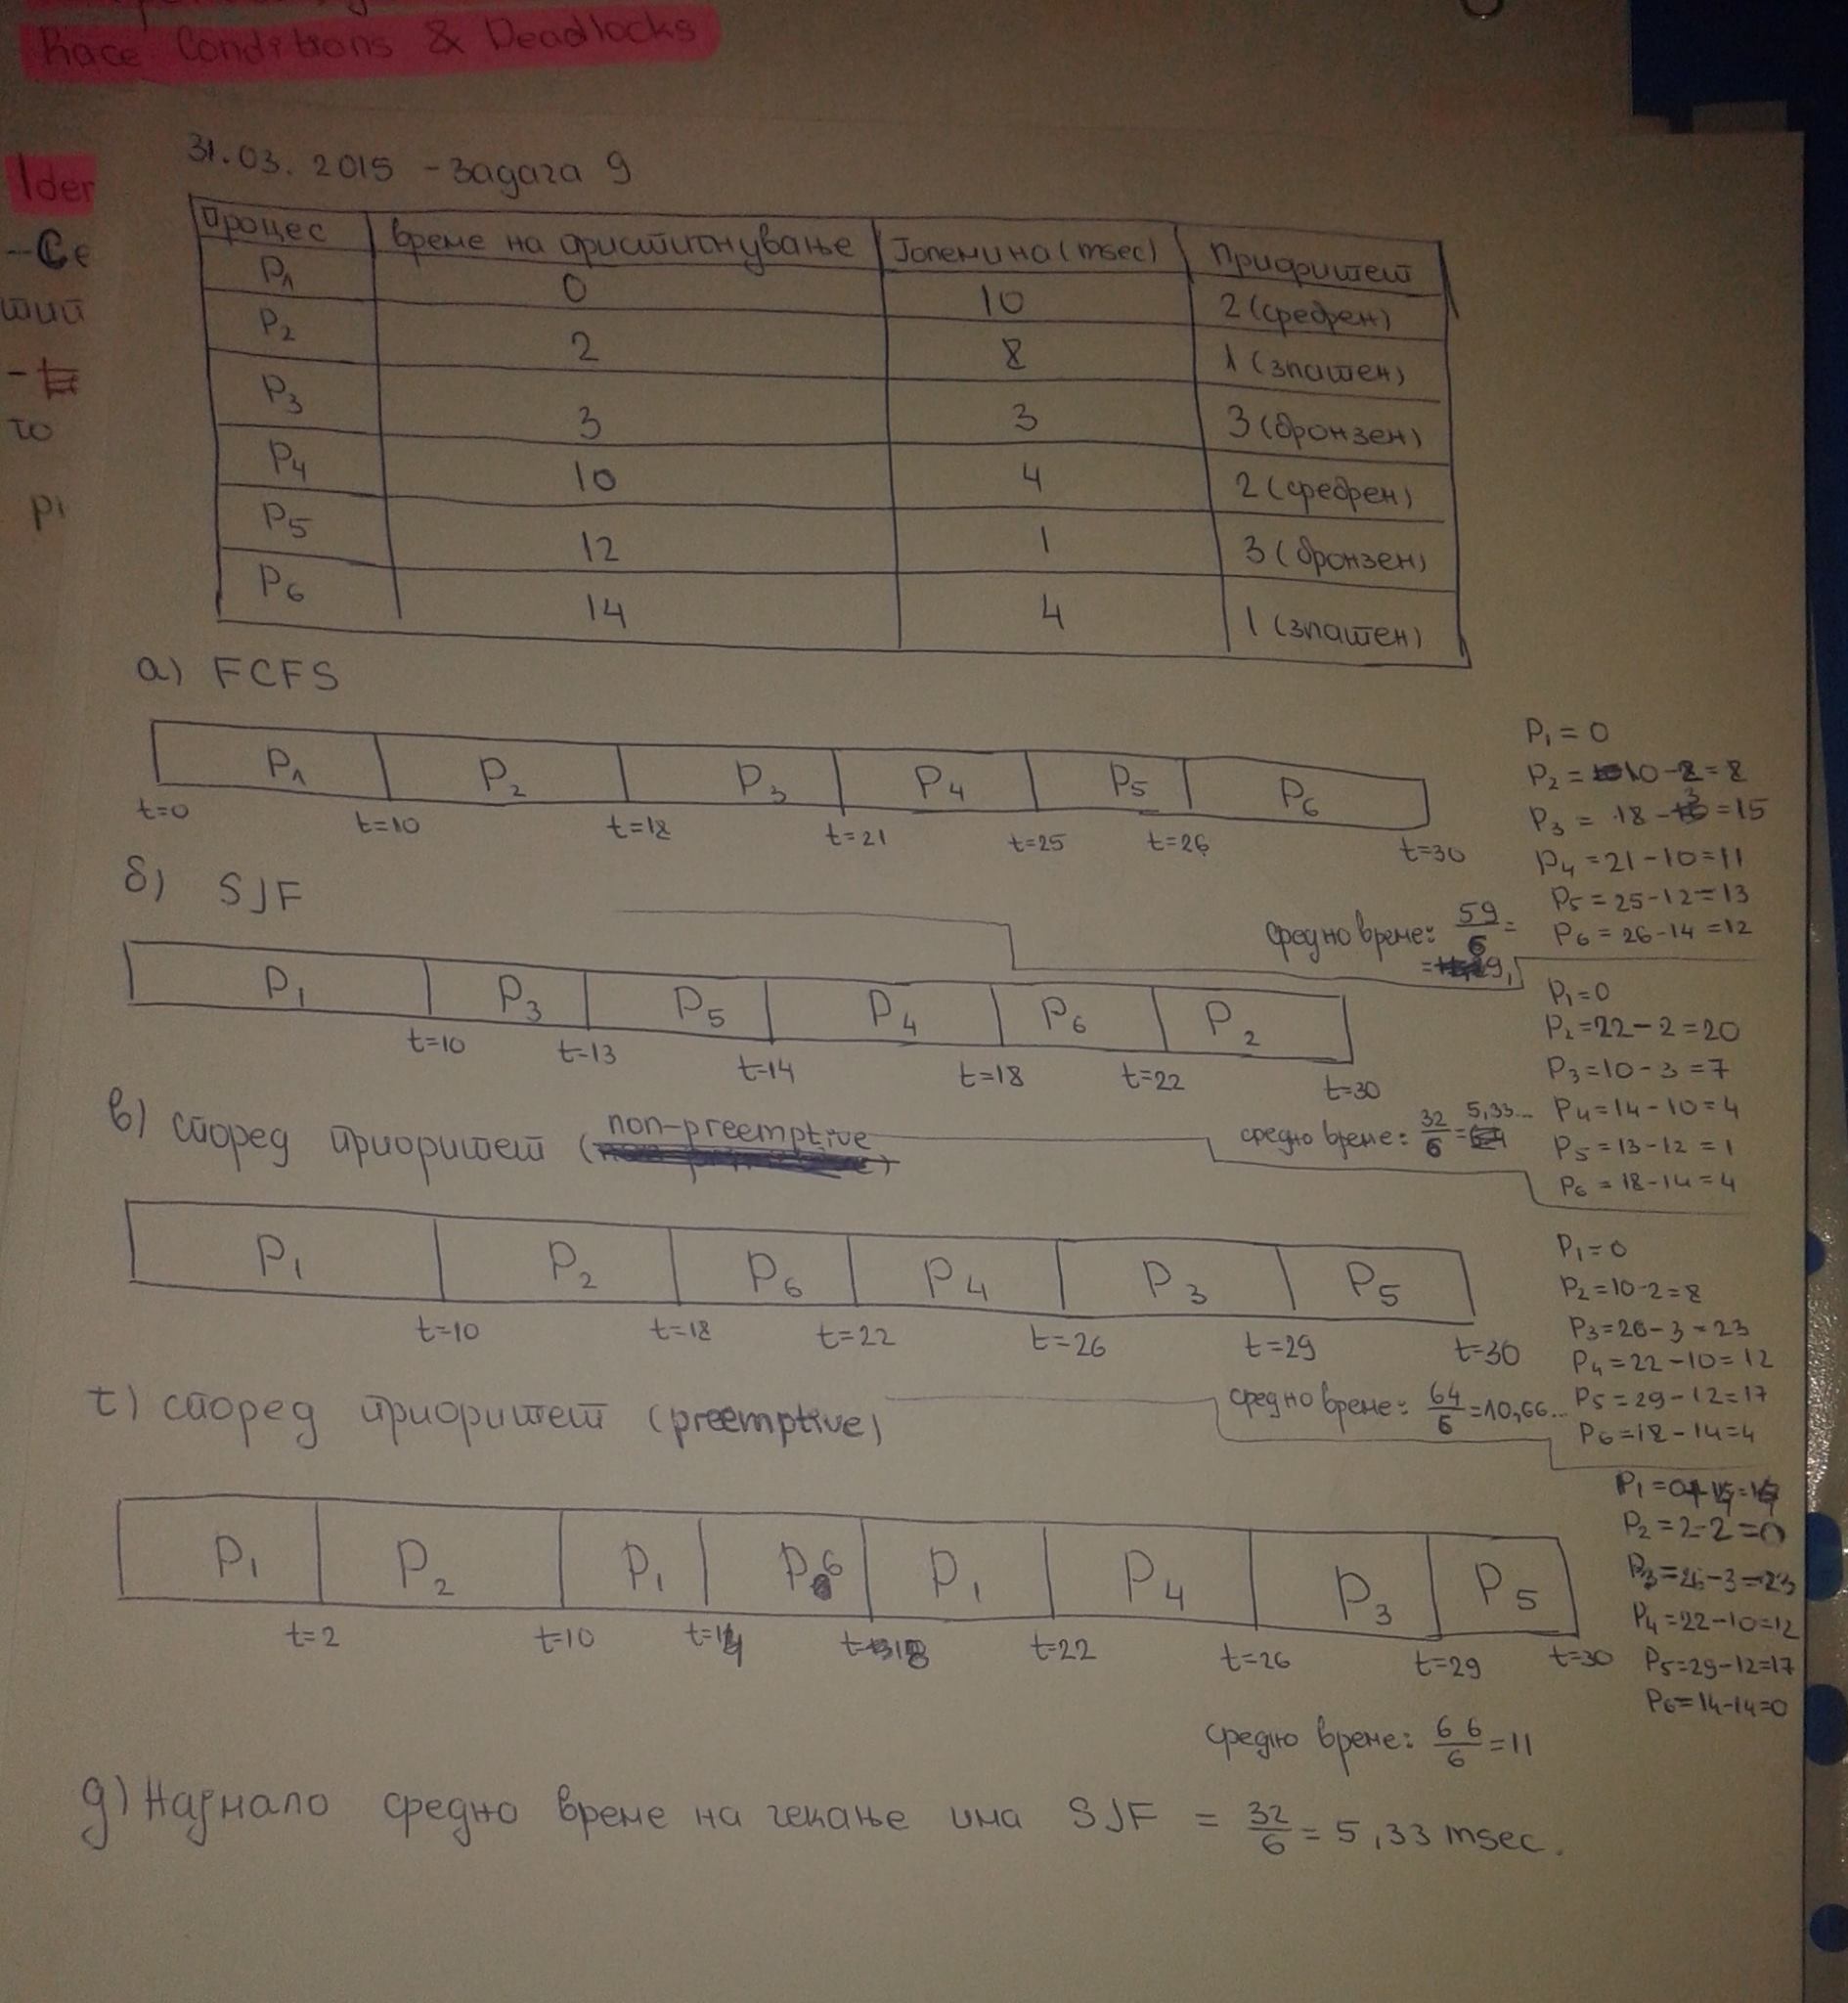 Race Conditions & Deadlocks
Ider
-Се
то
Pi
31.03.2015 - Задача 9
Процес | време на пристигнување | Големина (msec) | Приоритет
P1 | 0 | 10 | 2 (сребрен)
P2 | 2 | 8 | 1 (златен)
P3 | 3 | 3 | 3 (бронзен)
P4 | 10 | 4 | 2 (сребрен)
P5 | 12 | 1 | 3 (бронзен)
P6 | 14 | 4 | 1 (златен)
а) FCFS
P1 P2 P3 P4 P5 P6
t=0 t=10 t=18 t=21 t=25 t=26 t=30
P1 = 0
P2 = 10-2=8
P3 = 18-3=15
P4 = 21-10=11
P5 = 25-12=13
P6 = 26-14=12
средно време: 59/6 =
= 9,
б) SJF
P1 P3 P5 P4 P6 P2
t=10 t=13 t=14 t=18 t=22 t=30
P1=0
P2=22-2=20
P3=10-3=7
P4=14-10=4
P5=13-12=1
P6=18-14=4
средно време: 32/6 = 5,33...
в) според приоритет (non-preemptive)
P1 P2 P6 P4 P3 P5
t=10 t=18 t=22 t=26 t=29 t=30
P1=0
P2=10-2=8
P3=26-3=23
P4=22-10=12
P5=29-12=17
P6=18-14=4
средно време: 64/6 =10,66...
г) според приоритет (preemptive)
P1 P2 P1 P6 P1 P4 P3 P5
t=2 t=10 t=14 t=18 t=22 t=26 t=29 t=30
P2=2-2=0
P3=26-3=23
P4=22-10=12
P5=29-12=17
P6=14-14=0
средно време: 66/6 =11
д) Најмало средно време на чекање има SJF = 32/6 = 5,33 msec.